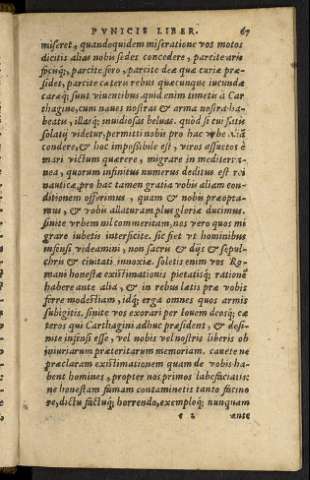 PVNICIS LIBER. 67
miseret, quandoquidem miseratione vos motos
dicitis alias nobis sedes concedere, parcite aris
focisq;, parcite foro, parcite deæ quæ curiæ præ-
sidet, parcite cæteris rebus quæcunque iucundæ
caræq; sunt viuentibus. quid enim timetis à Car
thagine, cum naues nostras & arma nostra ha-
beatis, illasq; inuidiosas beluas. quòd si cui satis
solatij videtur, permitti nobis pro hac vrbe
condere, & hoc impossibile est, viros assuetos è
mari victum quærere, migrare in mediterra-
nea, quorum infinitus numerus deditus est rei
nauticæ, pro hac tamen gratia vobis aliam con-
ditionem offerimus, quam & nobis præopta-
mus, & vobis allaturam plus gloriæ ducimus.
sinite vrbem nil commeritam, nos vero quos mi
grare iubetis interficite. sic fiet vt hominibus
infensi videamini, non sacris & dijs & sepul-
chris & ciuitati innoxiæ. soletis enim vos Ro-
mani honestæ existimationis pietatisq; rationē
habere ante alia, & in rebus lætis præ vobis
ferre modestiam, idq; erga omnes quos armis
subigitis. sinite vos exorari per Iouem deosq; cæ
teros qui Carthagini adhuc præsident, & desi-
nite infensi esse, vel nobis vel nostris liberis ob
iniuriarum præteritarum memoriam. cauete ne
præclaram existimationem quam de vobis ha-
bent homines, propter nos primos labefaciatis:
ne honestam famam contaminetis tanto facino
re, dictu factuq; horrendo, exemploq; nunquam
e 2 ante